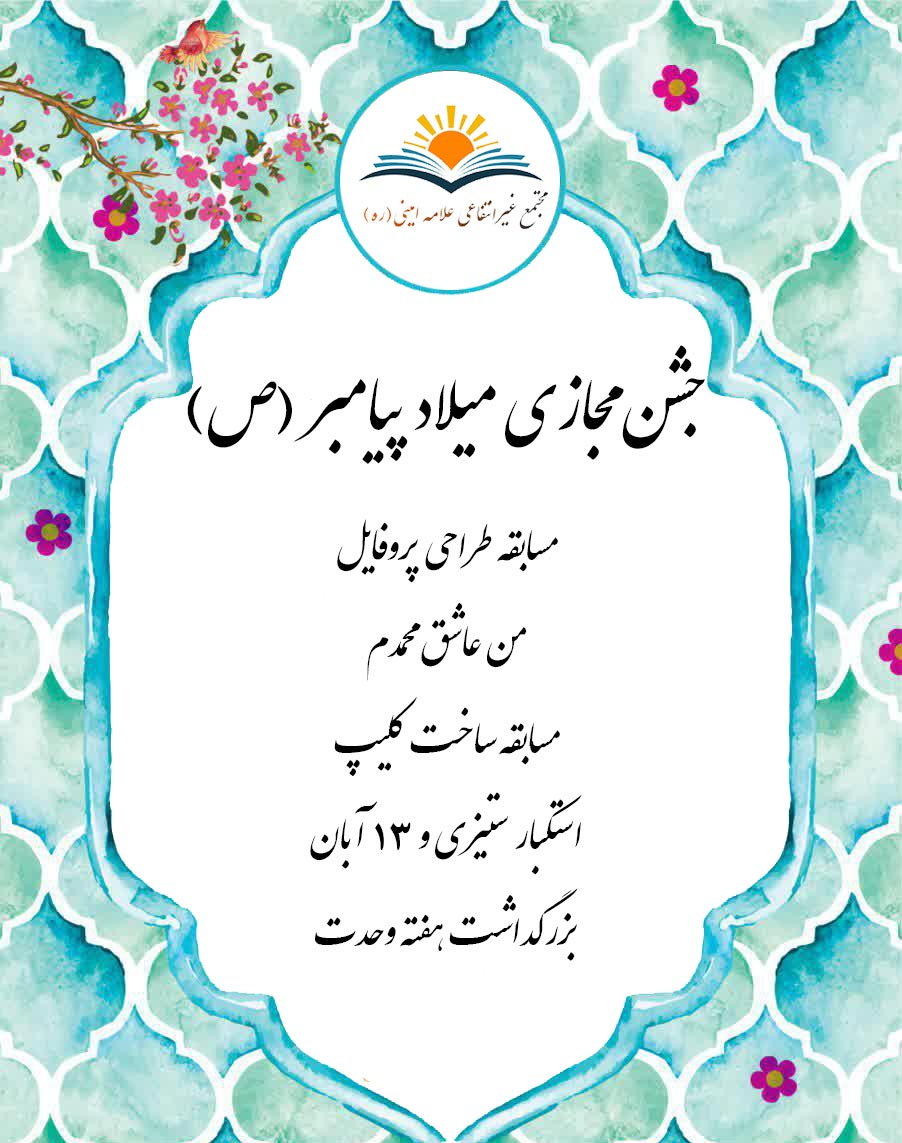 مجتمع غیرانتفاعی علامه امینی (ره)
جشن مجازی میلاد پیامبر (ص)
مسابقه طراحی پروفایل
من عاشق محمدم
مسابقه ساخت کلیپ
استکبار ستیزی و ۱۳ آبان
بزرگداشت هفته وحدت